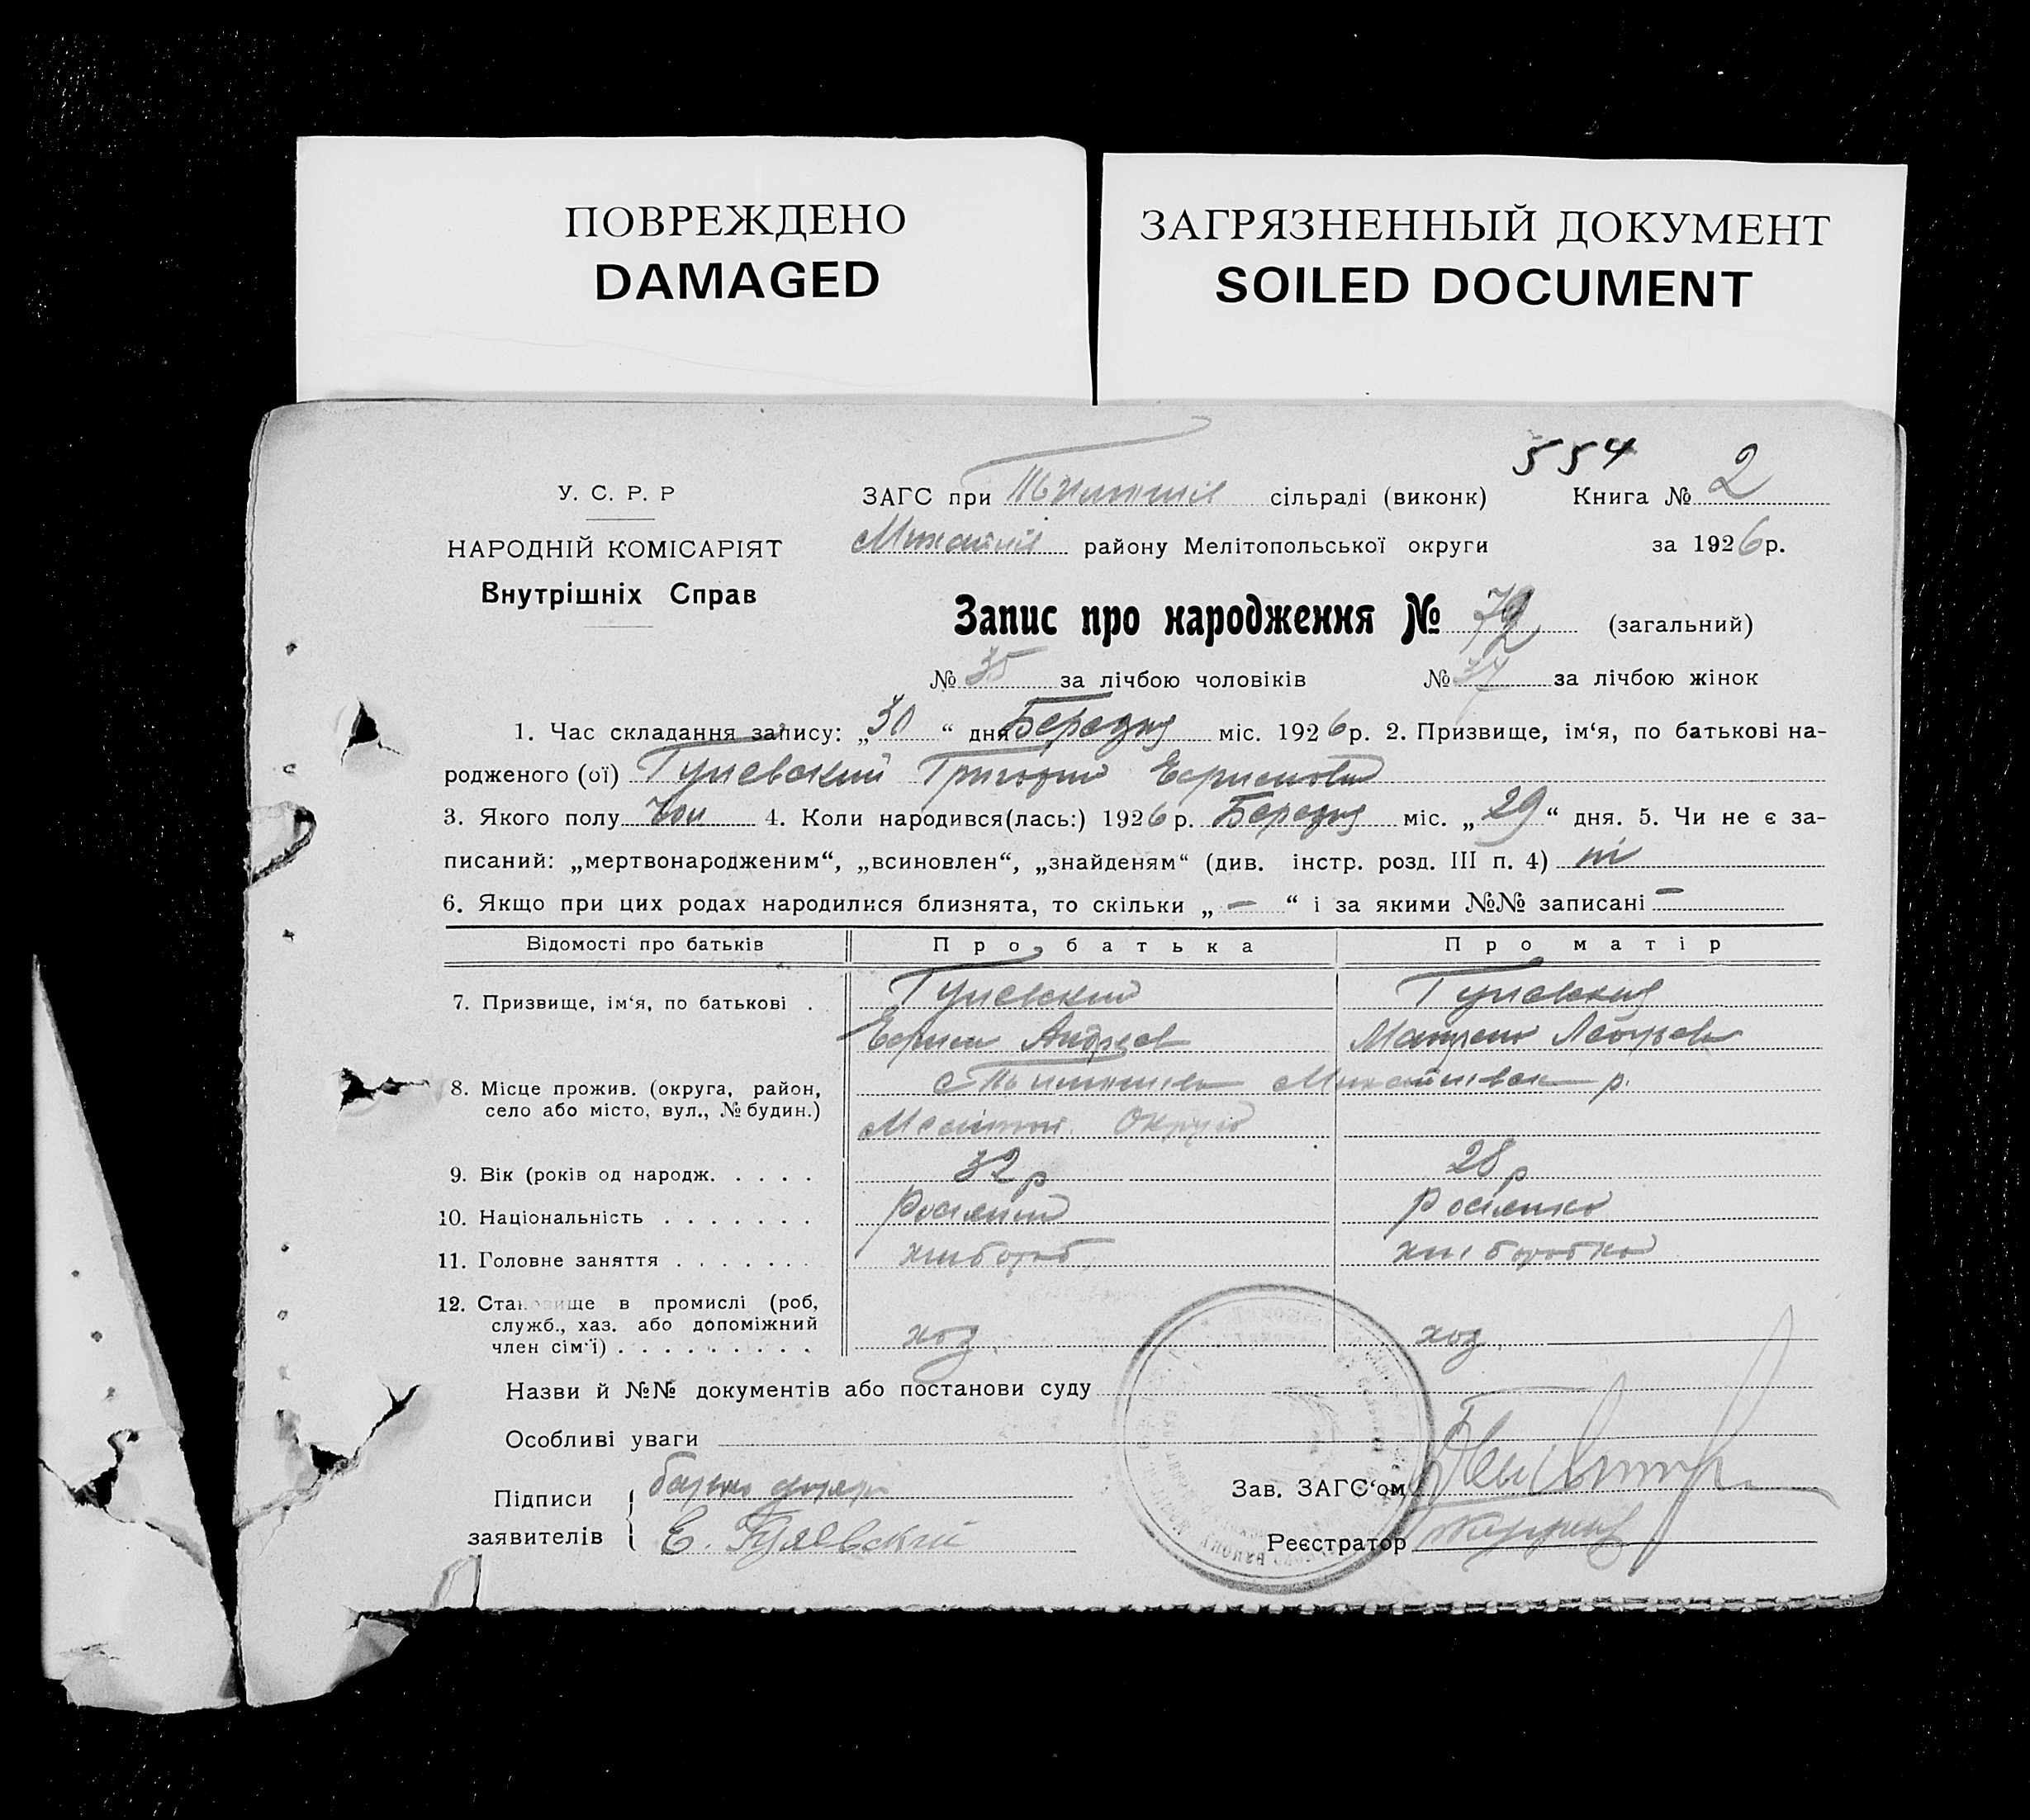 ПОВРЕЖДЕНО
DAMAGED
ЗАГРЯЗНЕННЫЙ ДОКУМЕНТ
SOILED DOCUMENT
554
У. С. Р. Р
НАРОДНІЙ КОМІСАРІЯТ
Внутрішніх Справ
ЗАГС при сільраді (виконк) Книга № 2
району Мелітопольської округи за 1926 р.
Запис про народження № (загальний)
№ 35 за лічбою чоловіків № 37 за лічбою жінок
1. Час складання запису: „30“ дня Березня міс. 1926 р. 2. Призвище, ім‘я, по батькові на-
родженого (ої) Гуляевский Григорий
3. Якого полу чол 4. Коли народився(лась:) 1926 р. Березня міс. „29“ дня. 5. Чи не є за-
писаний: „мертвонародженим“, „всиновлен“, „знайденям“ (див. інстр. розд. III п. 4) ні
6. Якщо при цих родах народилися близнята, то скільки „—“ і за якими №№ записані —
Відомості про батьків Про батька Про матір
7. Призвище, ім‘я, по батькові . Гуляевский
Андреев
8. Місце прожив. (округа, район,
село або місто, вул., № будин.)
Округа
9. Вік (років од народж. . . . . 32 р 28 р
10. Національність . . . . . . .
11. Головне заняття . . . . . . . хлібороб хліборобка
12. Становище в промислі (роб,
служб., хаз. або допоміжний
член сім‘ї) . . . . . . . . . хоз. хоз.
Назви й №№ документів або постанови суду
Особливі уваги
Підписи
заявителів Е. Гуляевский
Зав. ЗАГС‘ом
Реєстратор